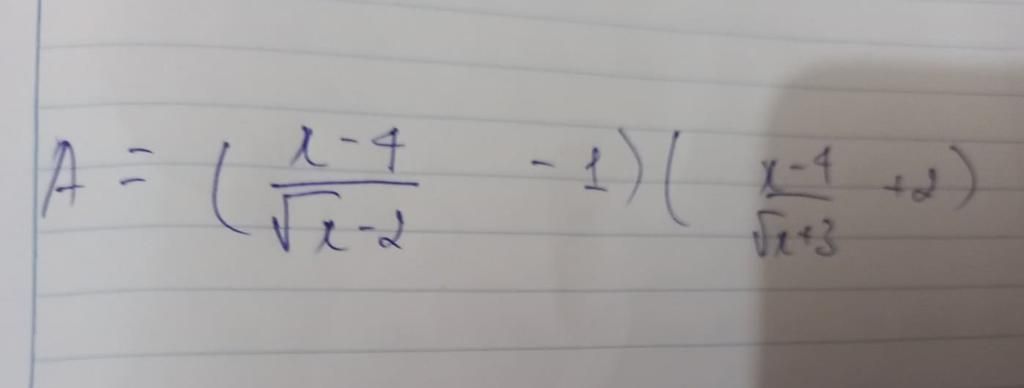 A = (\frac{x-4}{\sqrt{x}-2} - 1)(\frac{x-4}{\sqrt{x}+3} + 2)